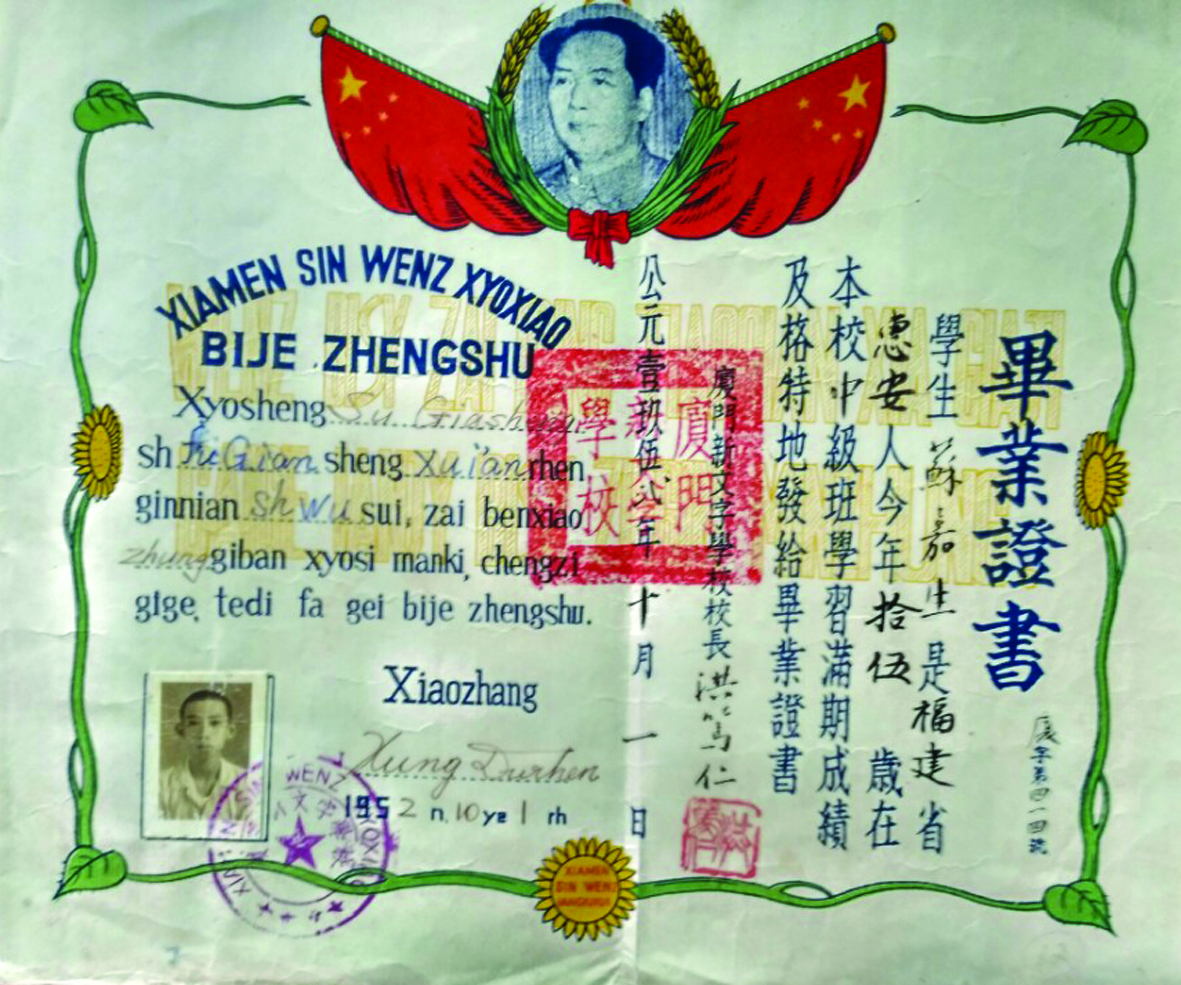 XIAMEN SIN WENZ XYOXIAO
BIJE ZHENGSHU
Xyosheng Su Giasheng
sh Fu Gian sheng Xui'an rhen
ginnian sh wu sui, zai benxiao
zhung giban xyosi manki, chengzi
gige, tedi fa gei bije zhengshu.
Xiaozhang
Xung Durhen
1952 n. 10 ye 1 rh
畢業證書
廈字第四一四號
學生蘇嘉生是福建省
惠安人今年拾伍歲在
本校中級班學習滿期成績
及格特地發給畢業證書
廈門新文字學校校長洪篤仁
公元壹玖伍弍年十月一日
廈門
新文字
學校
XIAMEN
SIN WENZ